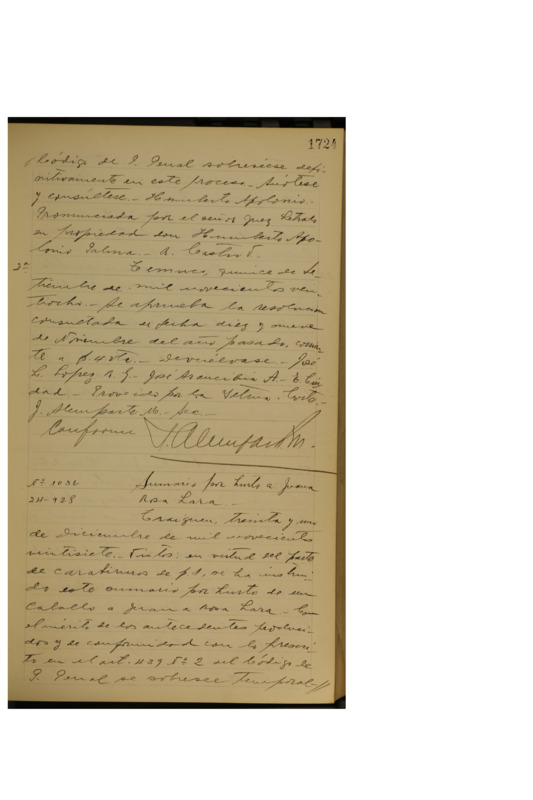 1724
Código de P. Penal sobreséese defi-
nitivamente en este proceso. Anótese
y consúltese. Humberto Apolonio.
Pronunciada por el señor Juez Letrado
en propiedad don Humberto Apo-
lonio Palma. R. Castro
2ª Temuco, quince de Se-
tiembre de mil novecientos vein-
tiocho. Se aprueba la resolución
consultada de fecha diez y nueve
de Noviembre del año pasado, corrien-
te a f. vta. Devuélvase. José
L. Lopez R. G. José Arancibia A. E. Ciu-
dad. Proveído por la Iltma. Corte.
J. Alemparte M. Sec.
Conforme J. Alemparte M.
Nº 1036 Sumario por hurto a Juana
24-928 Rosa Lara.
Traiguen, treinta y uno
de diciembre de mil novecientos
veintisiete. Vistos: en virtud del parte
de carabineros de f 1, se ha instrui-
do este sumario por hurto de un
caballo a Juana Rosa Lara. Con
el mérito de los antecedentes produci-
dos y de conformidad con lo prescri-
to en el art. 439 Nº 2 del Código de
P. Penal se sobresee temporal-